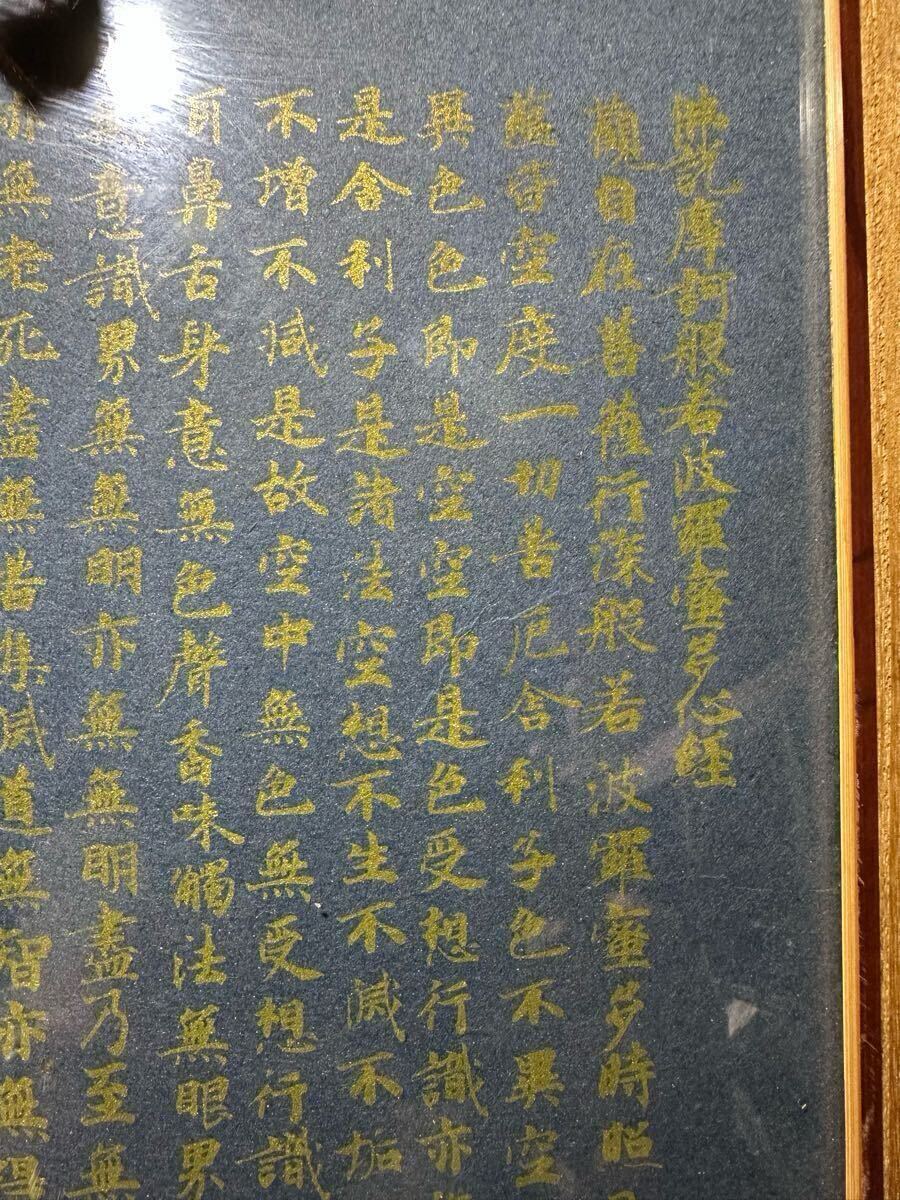 佛説摩訶般若波羅蜜多心経
觀自在菩薩行深般若波羅蜜多時照
蘊皆空度一切苦厄舎利子色不異空
異色色即是空空即是色受想行識亦
是舎利子是諸法空想不生不滅不垢
不増不減是故空中無色無受想行識
耳鼻舌身意無色聲香味觸法無眼界
意識界無無明亦無無明盡乃至無
亦無老死盡無苦集滅道無智亦無得